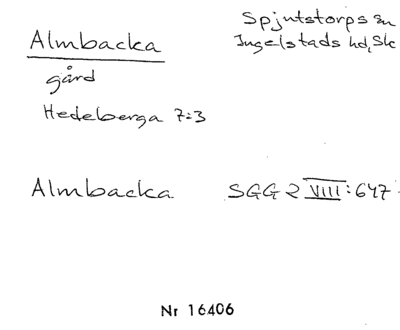 Almbacka
Spjutstorps sn
Ingelstads hd, Sk
gård
Hedeberga 7:3
Almbacka SGG 2 VIII: 647
Nr 16406